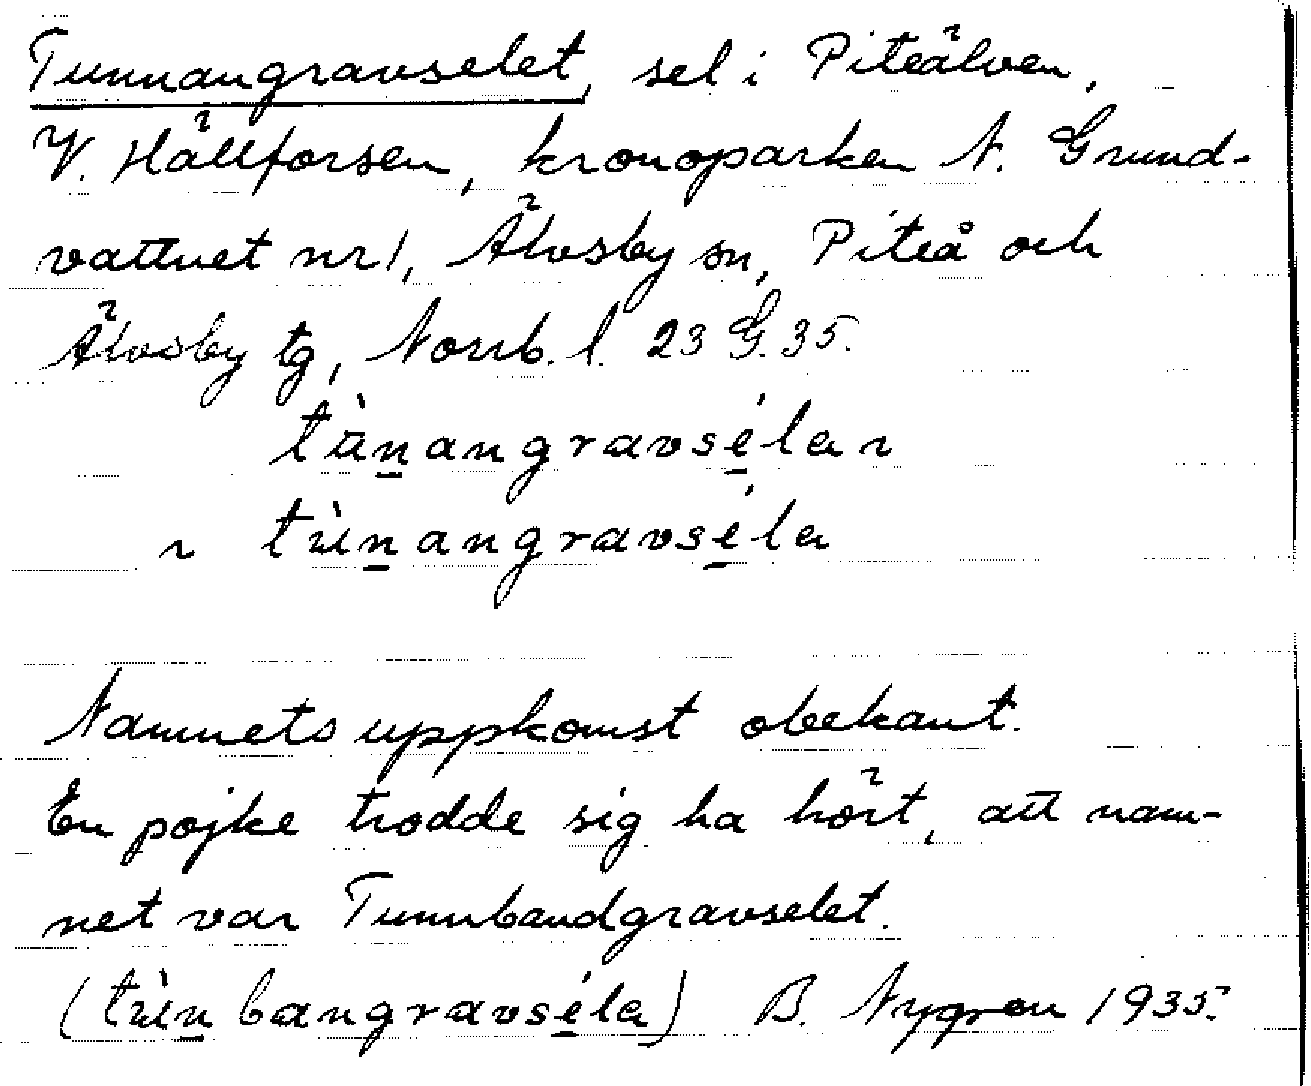 Tunnangravselet, sel i Piteälven,
V. Hällforsen, kronoparken N. Grund-
vattnet nr 1, Älvsby sn, Piteå och
Älvsby tg, Norrb. l. 23 G. 35.
tùn̲angravsé̲la ~
~ tùn̲angravsé̲la
Namnets uppkomst obekant.
En pojke trodde sig ha hört, att nam-
net var Tunnbandgravselet.
(tùn̲bangravsé̲la) B. Nygren 1935.